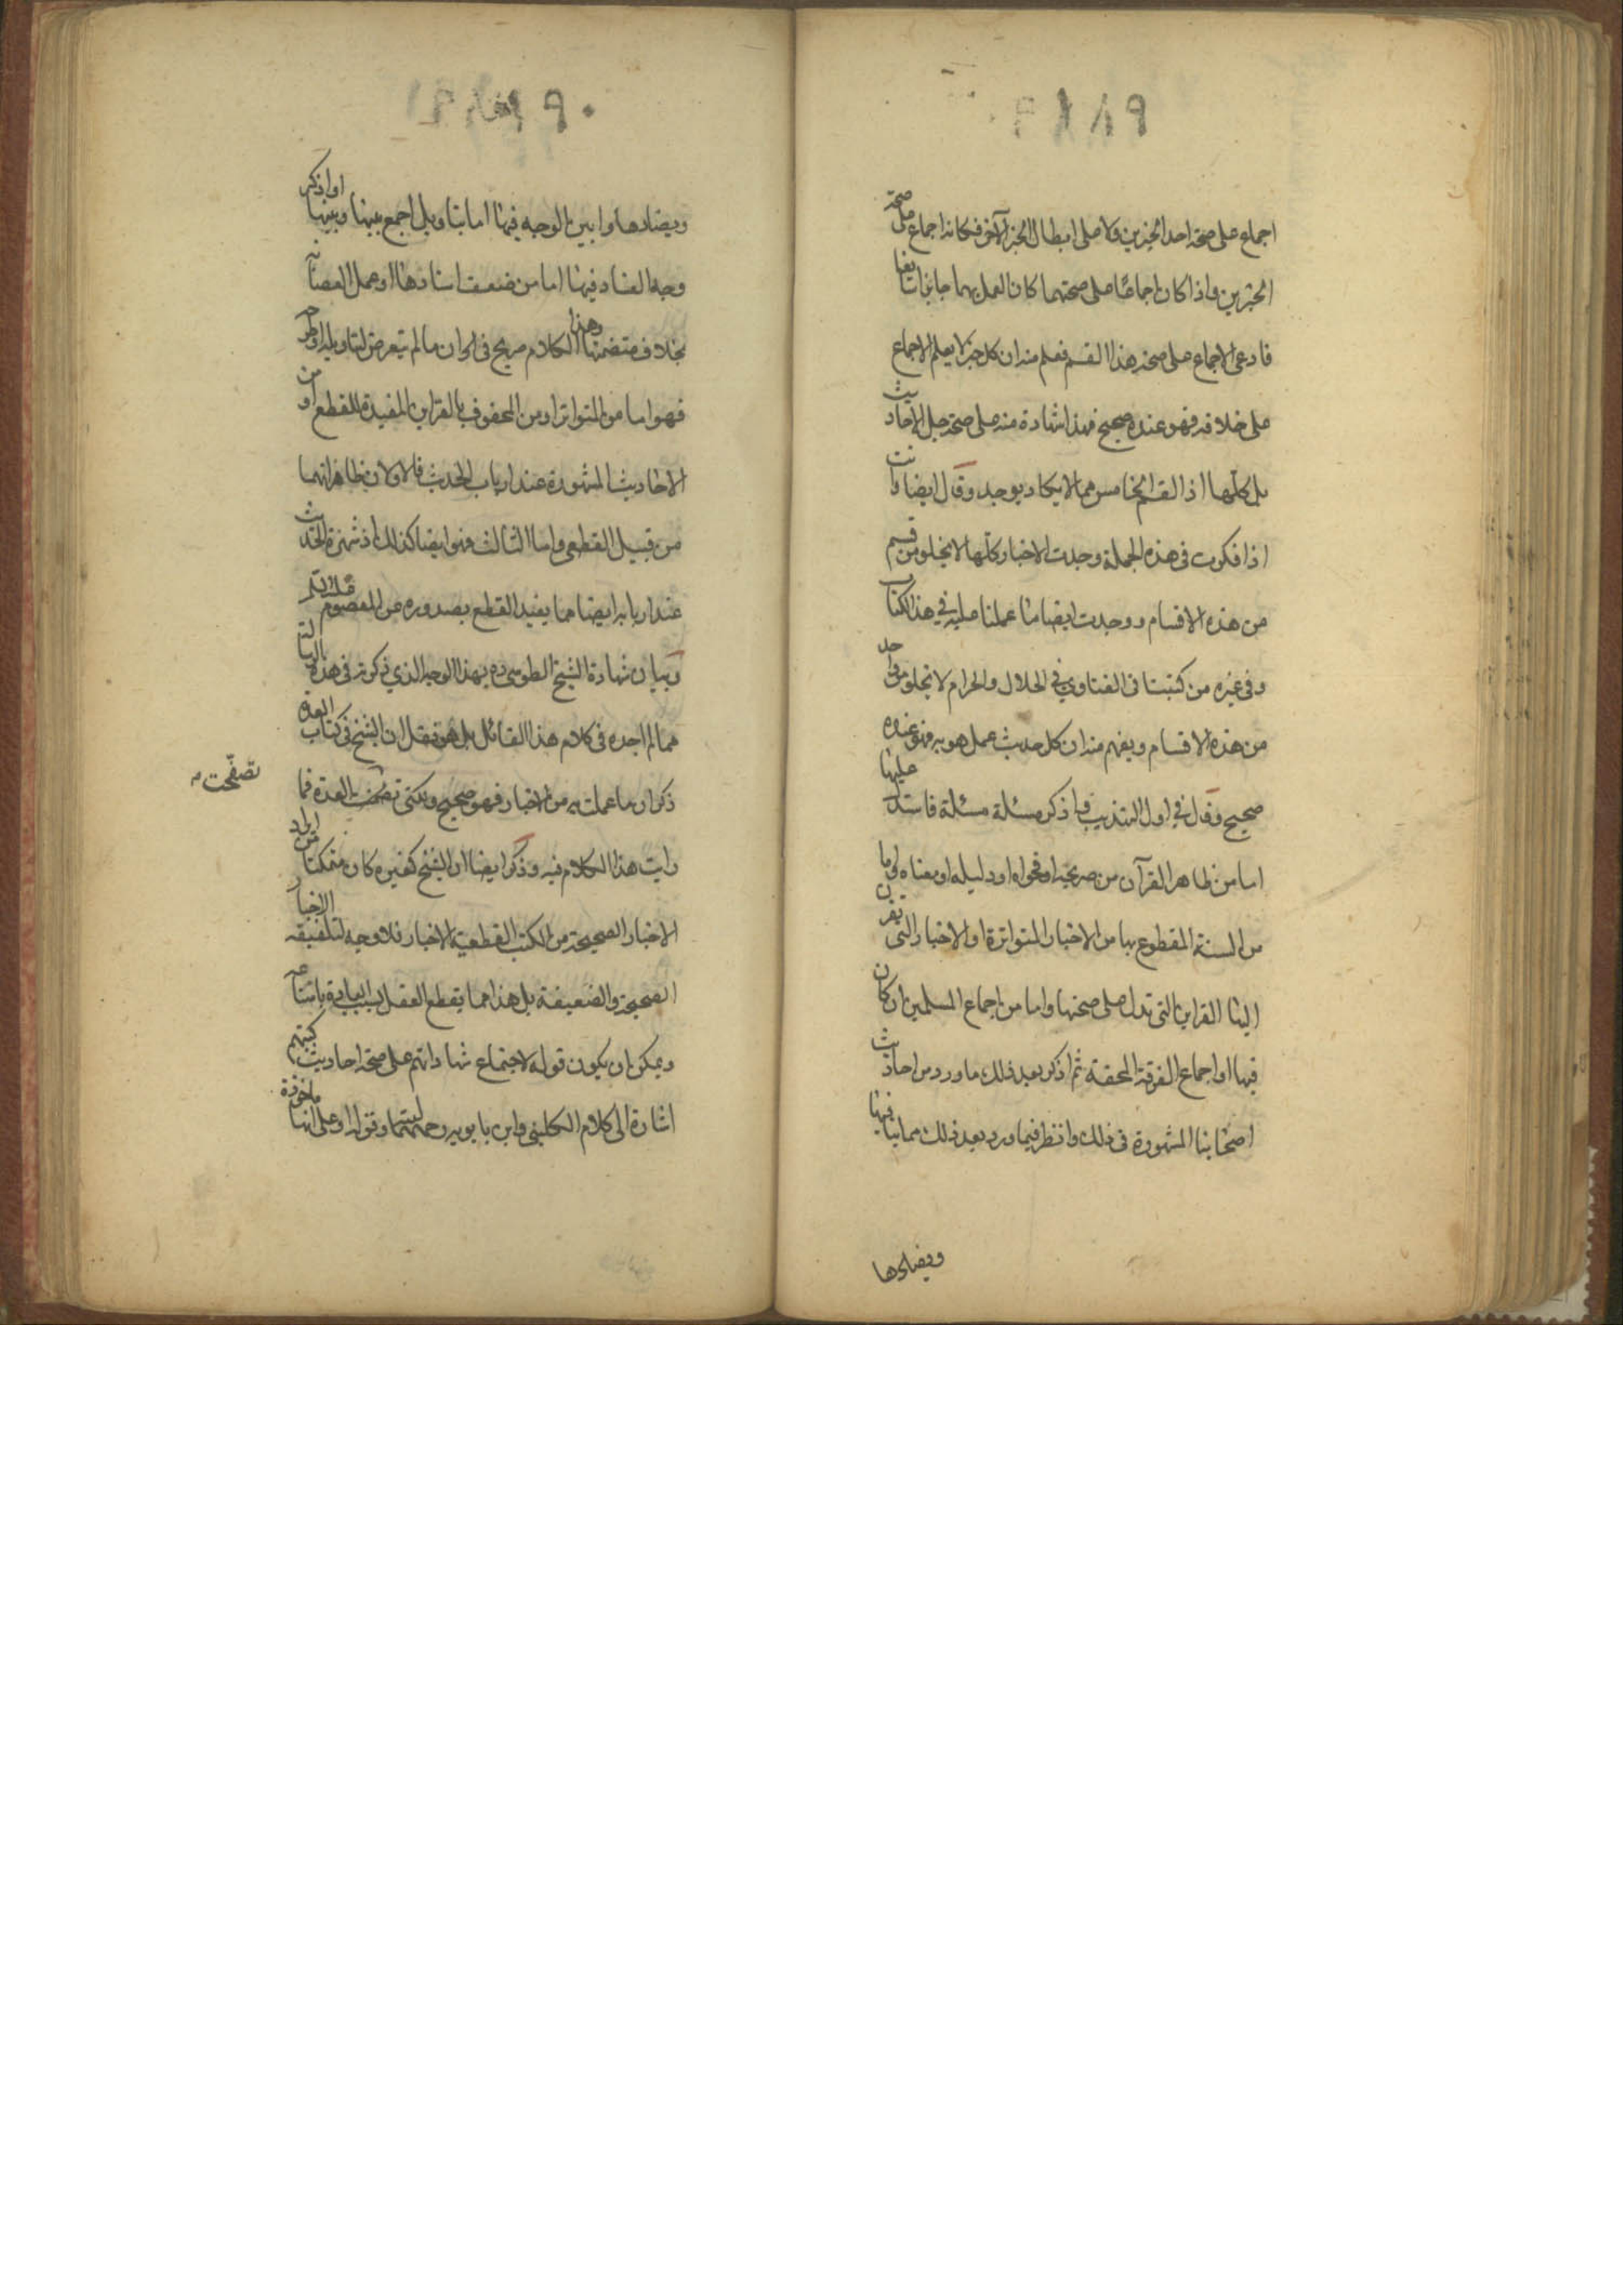 اجماع على صحة احد الخبرين ولا على ابطال الخبر الآخر فكانه اجماع على صحة
الخبرين واذا كان اجماعا على صحتهما كان العمل بهما جايزا سايغا
فادعى الاجماع على صحة هذا القسم فعلم منه ان كل خبر لا يعلم الاجماع
على خلافه فهو عنده صحيح فهذا شهادة منه على صحة جل الاحاديث
بل كلها اذ القسم الخامس مما لا يكاد يوجد وقال ايضا وانت
اذا فكرت في هذه الجملة وجدت الاخبار كلها لا يخلو من قسم
من هذه الاقسام ووجدت ايضا ما عملنا عليه في هذا الكتاب
وفي غيره من كتبنا في الفتاوي في الحلال والحرام لا يخلو من واحد
من هذه الاقسام ويفهم منه ان كل حديث عمل هو به فهو عنده
صحيح وقال في اول التهذيب واذكر مسئلة مسئلة فاستدل عليها
اما من ظاهر القرآن من صريحه او فحواه او دليله او معناه واما
من السنة المقطوع بها من الاخبار المتواترة او الاخبار التي تقترن
اليها القراين التي تدل على صحتها واما من اجماع المسلمين ان كان
فيها او اجماع الفرقة المحقة ثم اذكر بعد ذلك ما ورد من احاديث
اصحابنا المشهورة في ذلك وانظر فيما ورد بعد ذلك مما ينافيها
ويضادها
ويضادها وابين الوجه فيها اما بتاويل اجمع بينها وبينها او اذكر
وجه الفساد فيها اما من ضعف اسنادها او عمل العصابة
بخلاف متضمنها وهذا الكلام صريح في ان ما لم يتعرض لتاويله او طرحه
فهو اما من المتواتر او من المحفوف بالقراين المفيدة للقطع او من
الاحاديث المشهورة عند ارباب الحديث فالاولان ظاهر انهما
من قبيل القطعي واما الثالث فهو ايضا كذلك اذ شهرة الحديث
عند اربابه ايضا مما يفيد القطع بصدوره عن المعصوم
وبيان شهادة الشيخ الطوسي ره بهذا الوجه الذي ذكرته في هذه الرسالة
مما لم اجده في كلام هذا القائل بل هو نقل ان الشيخ في كتاب العدة
ذكر ان ما عملت به من الاخبار فهو صحيح ولكني تصفحت العدة فما
تصفّحت
رايت هذا الكلام فيه وذكر ايضا ان الشيخ كغيره كان متمكنا من ايراد
الاخبار الصحيحة من الكتب القطعية الاخبار فلا وجه لتلفيقه الاخبار
الصحيحة والضعيفة بل هذا مما يقطع العقل بسبب العادة بامتناعه
ويمكن ان يكون قوله لاجتماع شهاداتهم على صحة احاديث كتبهم
اشارة الى كلام الكليني وابن بابويه رحمهما وقوله او على انها ماخوذة